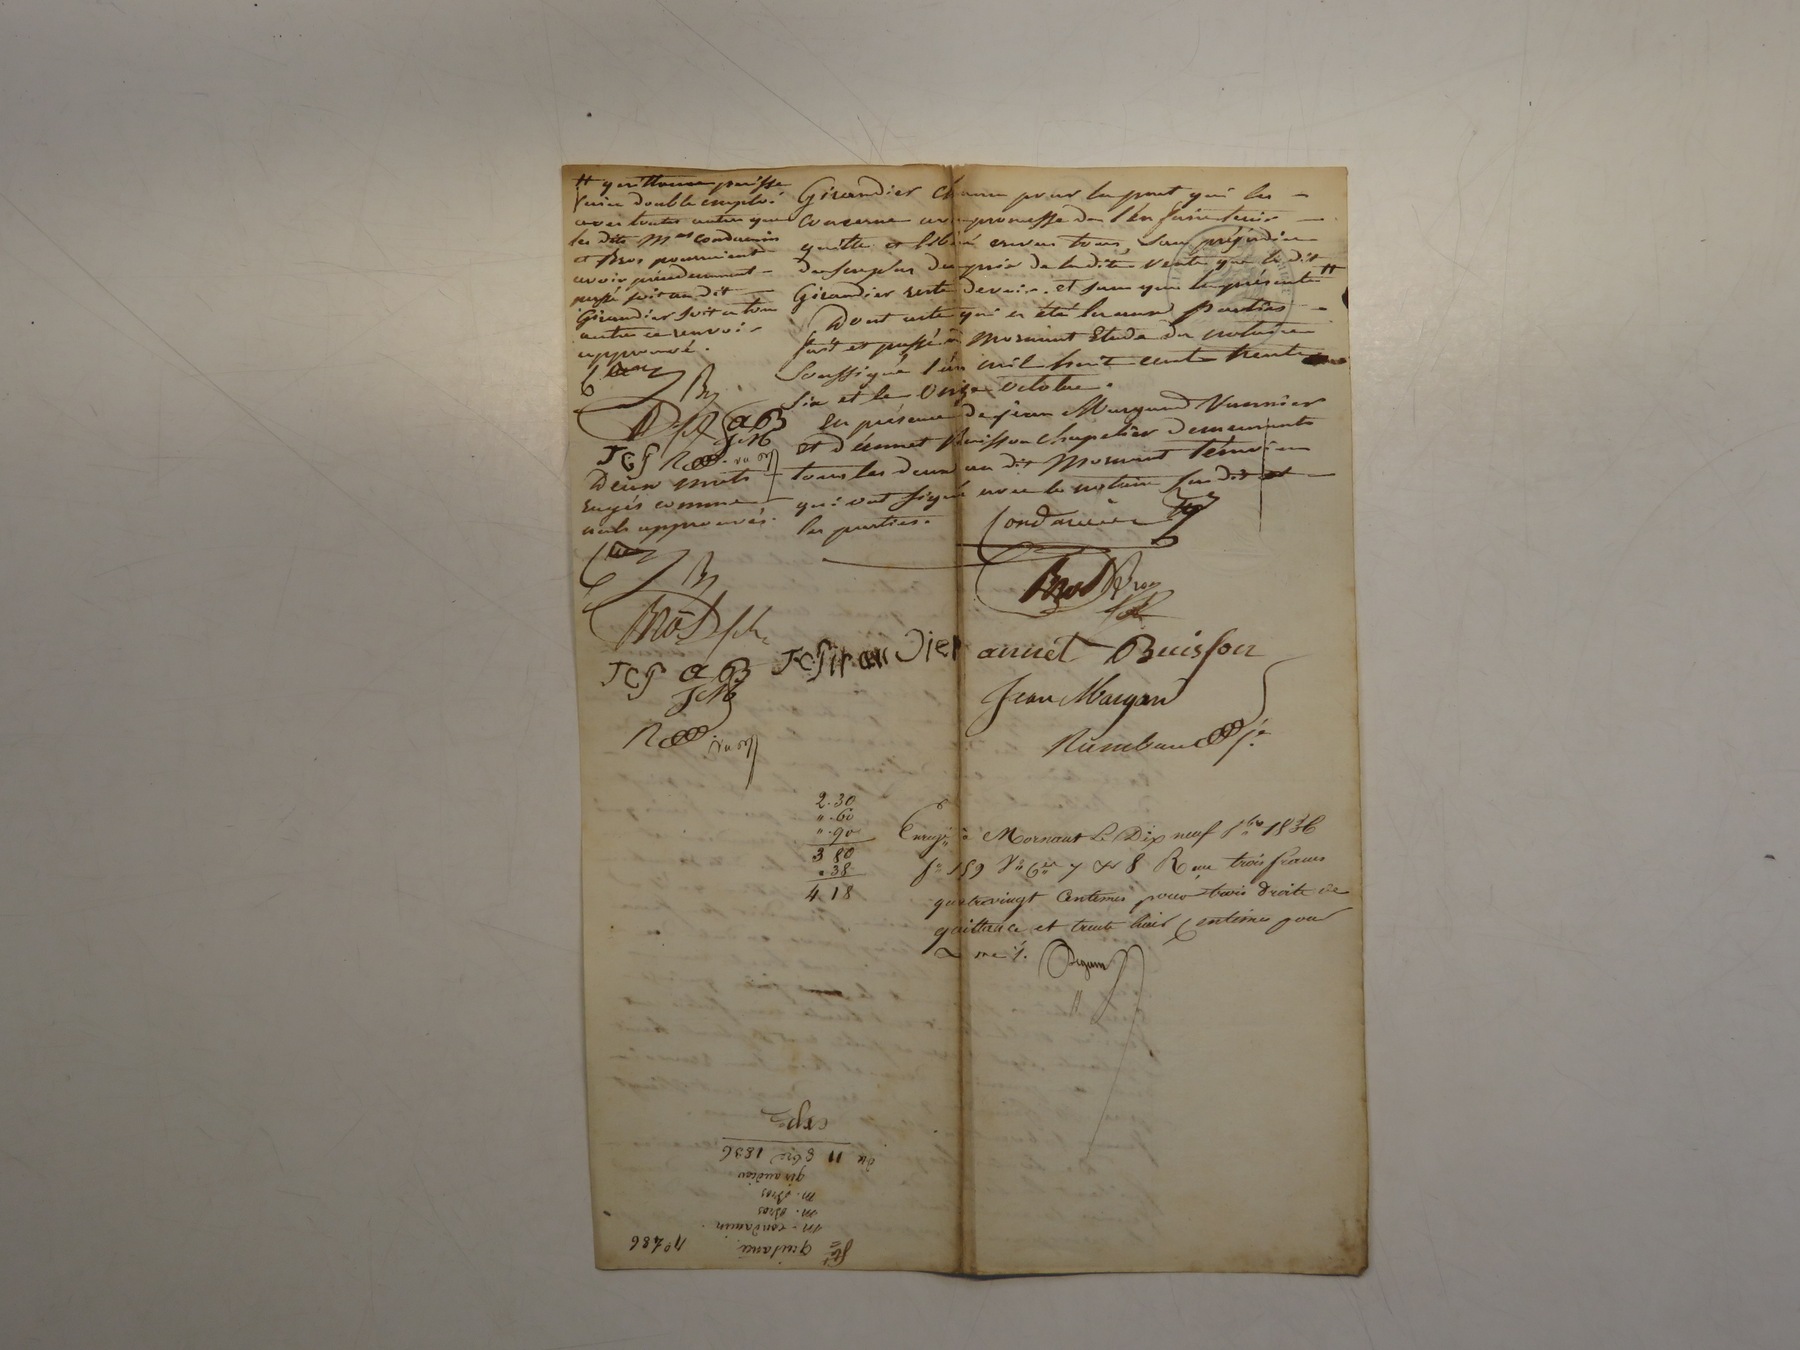 Girandier chacun pour la part qui les
concerne avec promesse de l'en faire tenir
quitte et libéré envers tous, sans préjudice
du surplus du prix de la dite vente que le dit
Girandier reste devoir. et sans que la présente #
Dont acte qui a été lu aux Parties
fait et passé à Mornant Etude du notaire
soussigné l'an mil huit cent trente
six et le onze octobre.
En présence de Jean Margand
et d'annet Buisson chapelier demeurants
tous les deux au dit Mornant témoins
qui ont signé avec le notaire susdit et
les parties.
# quittance puisse
faire double emploi
avec toutes autres que
les dits Mes Condamin
et Bros pourraient
avoir précédemment
passé soit au dit
Girandier soit à tous
autre ce renvoi
approuvé.
a B
J M
J C G
Deux mots
rayés comme
nuls approuvés.
Condamin
Bros Bros
J C Girandier annet Buisson
J C G a B
J M
Jean Margand
2.30
".60
".90
3 80
.38
4.18
Enregé à Mornant Le Dix neuf 8bre 1836
fo 159 Vo Ces 7 et 8 Reçu trois francs
quatrevingt Centimes pour trois droits de
quittance et trente huit Centimes pour
No 486
Quitance
m. Condamin
m. Bros
m. Bros
girandier
du 11 8bre 1836
expe